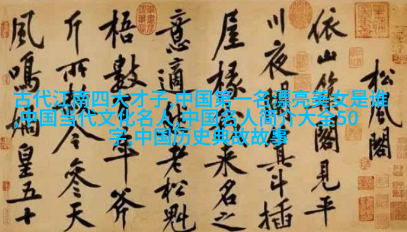 松風閣
依山築閣見平
川夜闌箕斗插
屋椽我來名之
意適然老松魁
梧數百年斧
斤所赦今參天
風鳴媧皇五十
古代江南四大才子,中国第一名漂亮美女是谁
,中国当代文化名人,中国名人简介大全50
字,中国历史典故故事